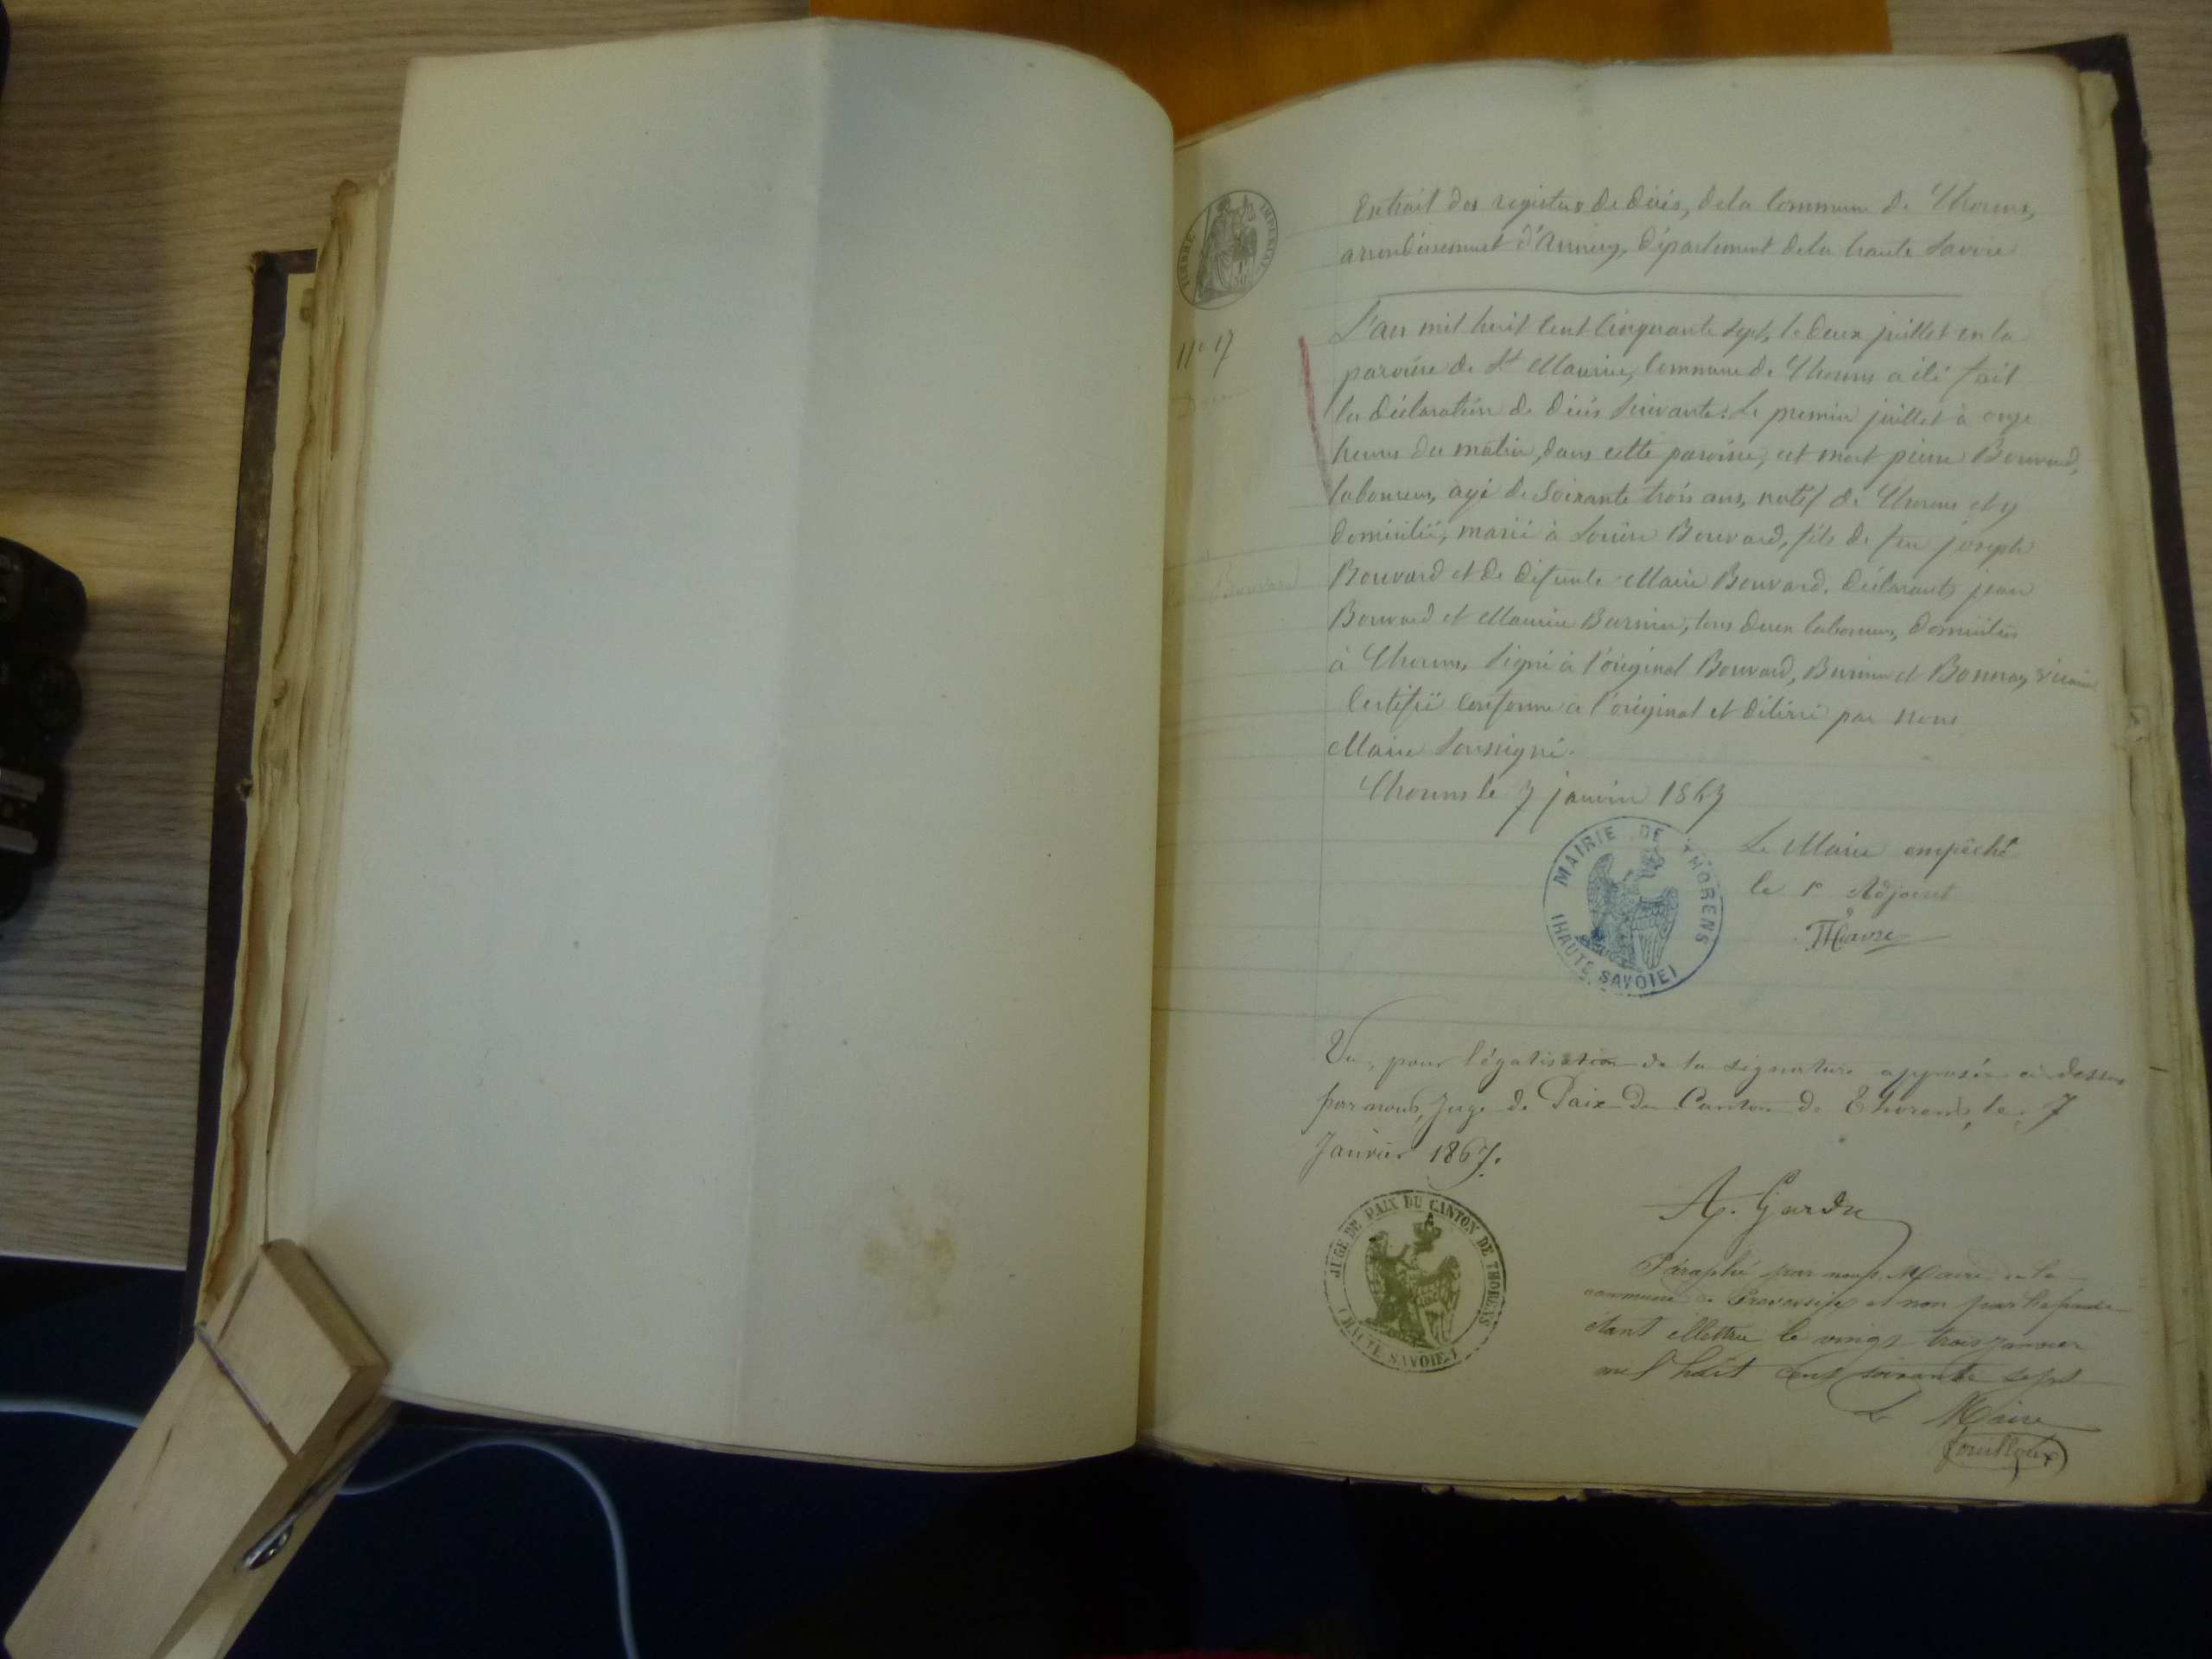 TIMBRE IMPERIAL
Extrait des registres de décès, de la commune de Thorens,
arrondissement d'Annecy, département de la haute Savoie
L'an mil huit cent cinquante sept, le deux juillet en la
N° 17
paroisse de St Maurice, commune de Thorens a été fait
la déclaration de décès suivante: Le premier juillet à onze
heures du matin, dans cette paroisse, est mort pierre Bouvard,
laboureur, agé de soixante trois ans, natif de Thorens et y
domicilié, marié à Bouvard, fils de feu joseph
Bouvard
Bouvard et de défunte Marie Bouvard. déclarants jean
Bouvard et Maurice tous deux laboureurs, domiciliés
à Thorens, signé à l'original Bouvard, et vicaire
Certifié conforme à l'original et délivré par nous
Maire soussigné.
Thorens le 7 janvier 1867
Le Maire empêché
le 1er Adjoint
MAIRIE DE THORENS
(HAUTE SAVOIE)
Vu, pour légalisation de la signature apposée ci-dessus
par nous, Juge de Paix du Canton de Thorens, le 7
Janvier 1867.
A. Gardu
JUGE DE PAIX DU CANTON DE THORENS
(HAUTE SAVOIE)
Paraphé par nous Maire de la
commune de et non par
étant illettré le vingt trois janvier
mil huit cent soixante sept
Le Maire
Fouilloux